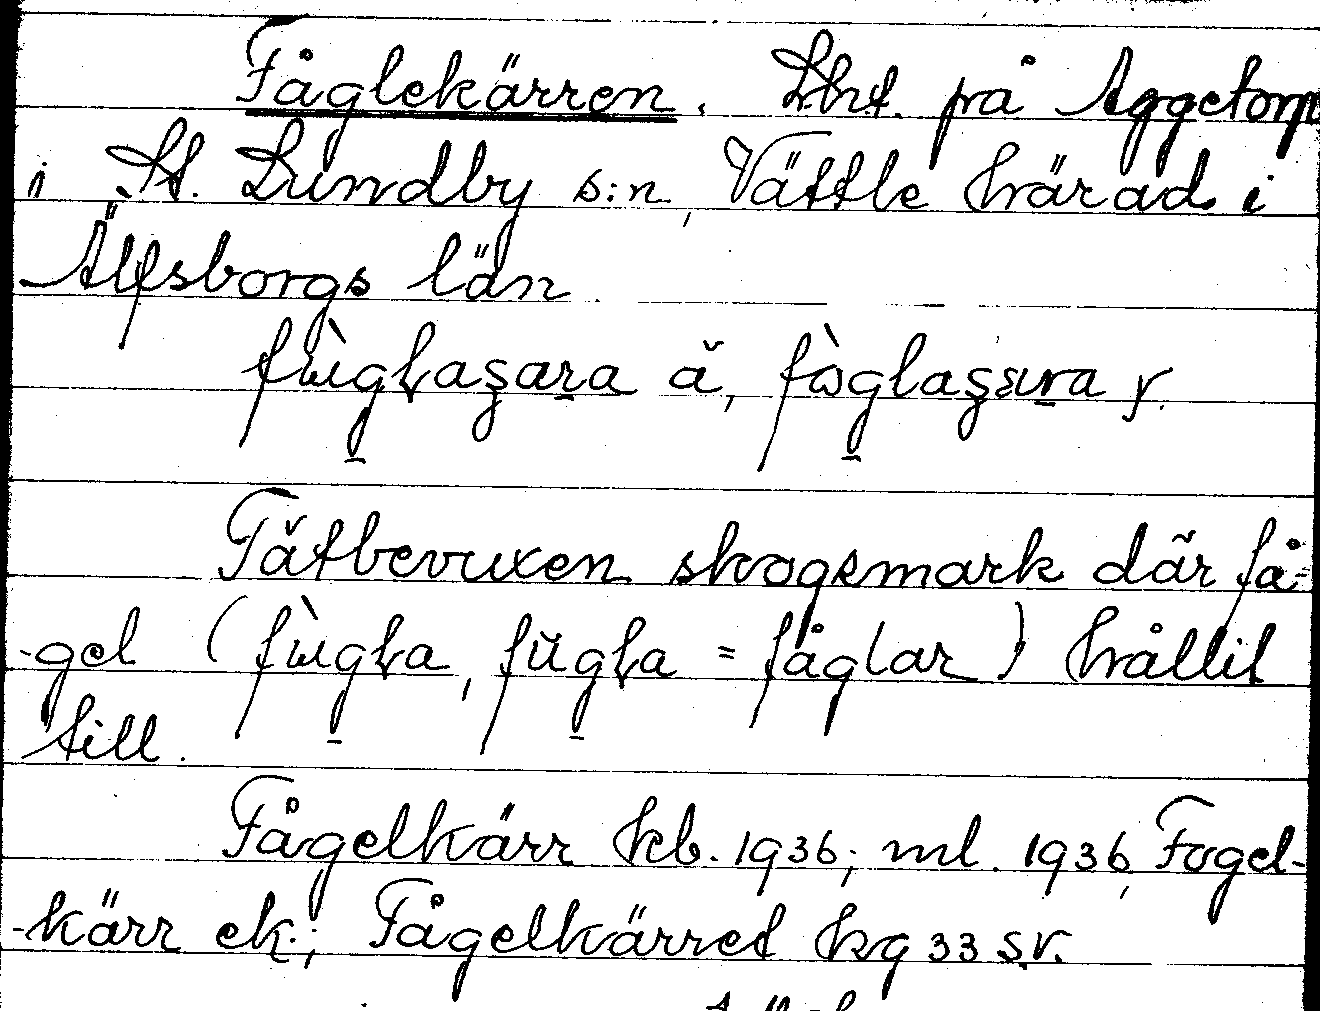 Fåglekärren. Lht. på Aggetorp
i St. Lundby s:n, Vättle härad i
Älfsborgs län
Tätbevuxen skogsmark där få-
-gel ( = fåglar) hållit
till.
Fågelkärr kb. 1936; ml. 1936, Fogel-
-kärr ek.; Fågelkärret hg 33 sv.